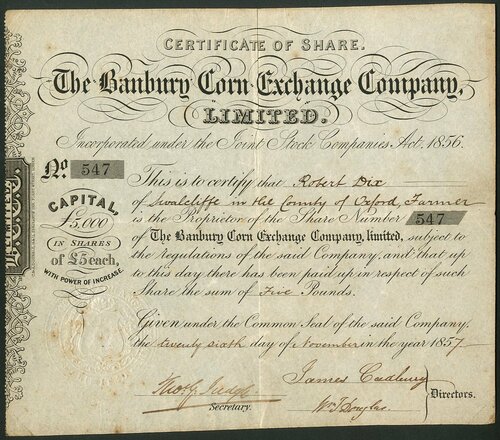 CERTIFICATE OF SHARE.
The Banbury Corn Exchange Company,
LIMITED.
Incorporated under the Joint Stock Companies Act, 1856.
No. 547
CAPITAL,
£5,000
IN SHARES
OF £5 each,
WITH POWER OF INCREASE.
This is to certify that Robert Dix
of Swalcliffe in the County of Oxford, Farmer
is the Proprietor of the Share Number 547
of The Banbury Corn Exchange Company, limited, subject to
the regulations of the said Company, and that up
to this day there has been paid up in respect of such
Share the sum of Five Pounds.
Given under the Common Seal of the said Company,
the twenty sixth day of November in the year 1857
James Cadbury
Wm. T. Douglas
Directors.
Secretary.